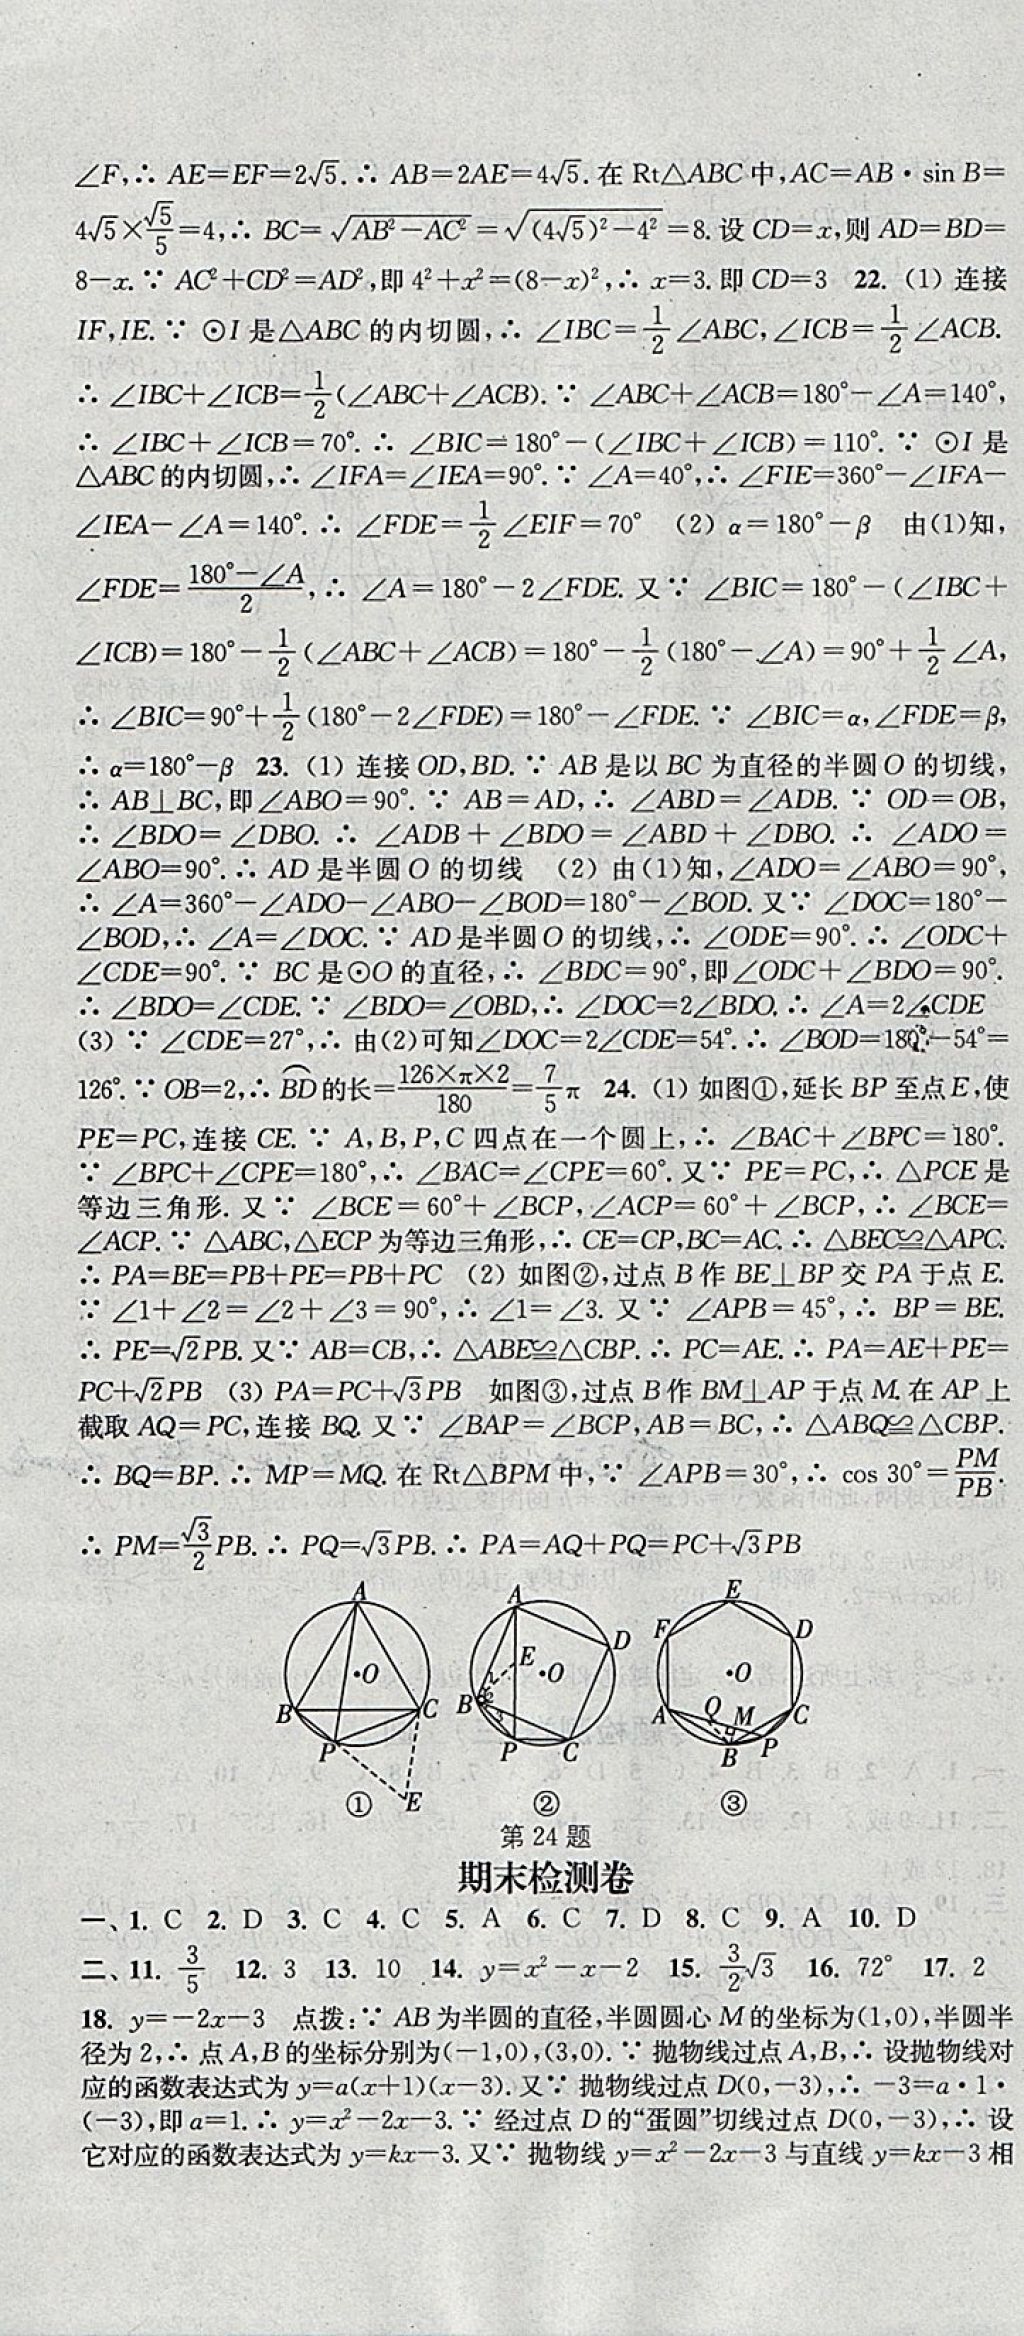 ∠F,∴ AE=EF=2√5.∴ AB=2AE=4√5.在 Rt△ABC中,AC=AB·sin B=
4√5×√5/5=4,∴ BC=√(AB²−AC²)=√((4√5)²−4²)=8.设 CD=x,则 AD=BD=
8−x.∵ AC²+CD²=AD²,即 4²+x²=(8−x)²,∴ x=3.即 CD=3 22. (1) 连接
IF,IE.∵ ⊙I 是△ABC 的内切圆,∴ ∠IBC=1/2∠ABC,∠ICB=1/2∠ACB.
∴ ∠IBC+∠ICB=1/2(∠ABC+∠ACB).∵ ∠ABC+∠ACB=180°−∠A=140°,
∴ ∠IBC+∠ICB=70°.∴ ∠BIC=180°−(∠IBC+∠ICB)=110°.∵ ⊙I 是
△ABC 的内切圆,∴ ∠IFA=∠IEA=90°.∵ ∠A=40°,∴ ∠FIE=360°−∠IFA−
∠IEA−∠A=140°.∴ ∠FDE=1/2∠EIF=70° (2) α=180°−β 由(1)知,
∠FDE=(180°−∠A)/2,∴ ∠A=180°−2∠FDE.又∵ ∠BIC=180°−(∠IBC+
∠ICB)=180°−1/2(∠ABC+∠ACB)=180°−1/2(180°−∠A)=90°+1/2∠A,
∴ ∠BIC=90°+1/2(180°−2∠FDE)=180°−∠FDE.∵ ∠BIC=α,∠FDE=β,
∴ α=180°−β 23. (1) 连接 OD,BD.∵ AB 是以 BC 为直径的半圆 O 的切线,
∴ AB⊥BC,即∠ABO=90°.∵ AB=AD,∴ ∠ABD=∠ADB.∵ OD=OB,
∴ ∠BDO=∠DBO.∴ ∠ADB+∠BDO=∠ABD+∠DBO.∴ ∠ADO=
∠ABO=90°.∴ AD 是半圆 O 的切线 (2) 由(1)知,∠ADO=∠ABO=90°,
∴ ∠A=360°−∠ADO−∠ABO−∠BOD=180°−∠BOD.又∵ ∠DOC=180°−
∠BOD,∴ ∠A=∠DOC.∵ AD 是半圆 O 的切线,∴ ∠ODE=90°.∴ ∠ODC+
∠CDE=90°.∵ BC 是⊙O 的直径,∴ ∠BDC=90°,即∠ODC+∠BDO=90°.
∴ ∠BDO=∠CDE.∵ ∠BDO=∠OBD,∴ ∠DOC=2∠BDO.∴ ∠A=2∠CDE
(3) ∵ ∠CDE=27°,∴ 由(2)可知∠DOC=2∠CDE=54°.∴ ∠BOD=180°−54°=
126°.∵ OB=2,∴ BD⌒的长=(126×π×2)/180=7/5π 24. (1) 如图①,延长 BP 至点 E,使
PE=PC,连接 CE.∵ A,B,P,C 四点在一个圆上,∴ ∠BAC+∠BPC=180°.
∵ ∠BPC+∠CPE=180°,∴ ∠BAC=∠CPE=60°.又∵ PE=PC,∴ △PCE 是
等边三角形.又∵ ∠BCE=60°+∠BCP,∠ACP=60°+∠BCP,∴ ∠BCE=
∠ACP.∵ △ABC,△ECP 为等边三角形,∴ CE=CP,BC=AC.∴ △BEC≌△APC.
∴ PA=BE=PB+PE=PB+PC (2) 如图②,过点 B 作 BE⊥BP 交 PA 于点 E.
∵ ∠1+∠2=∠2+∠3=90°,∴ ∠1=∠3.又∵ ∠APB=45°,∴ BP=BE.
∴ PE=√2PB.又∵ AB=CB,∴ △ABE≌△CBP.∴ PC=AE.∴ PA=AE+PE=
PC+√2PB (3) PA=PC+√3PB 如图③,过点 B 作 BM⊥AP 于点 M.在 AP 上
截取 AQ=PC,连接 BQ.又∵ ∠BAP=∠BCP,AB=BC,∴ △ABQ≌△CBP.
∴ BQ=BP.∴ MP=MQ.在 Rt△BPM 中,∵ ∠APB=30°,∴ cos 30°=PM/PB.
∴ PM=√3/2PB.∴ PQ=√3PB.∴ PA=AQ+PQ=PC+√3PB
A O B C P E ①
A D E O B 1 2 3 P C ②
E F D O A Q M C B P ③
第 24 题
期末检测卷
一、1. C 2. D 3. C 4. C 5. A 6. C 7. D 8. C 9. A 10. D
二、11. 3/5 12. 3 13. 10 14. y=x²−x−2 15. 3/2√3 16. 72° 17. 2
18. y=−2x−3 点拨:∵ AB 为半圆的直径,半圆圆心 M 的坐标为(1,0),半圆半
径为 2,∴ 点 A,B 的坐标分别为(−1,0),(3,0).∵ 抛物线过点 A,B,∴ 设抛物线对
应的函数表达式为 y=a(x+1)(x−3).又∵ 抛物线过点 D(0,−3),∴ −3=a·1·
(−3),即 a=1.∴ y=x²−2x−3.∵ 经过点 D 的“蛋圆”切线过点 D(0,−3),∴ 设
它对应的函数表达式为 y=kx−3.又∵ 抛物线 y=x²−2x−3 与直线 y=kx−3 相